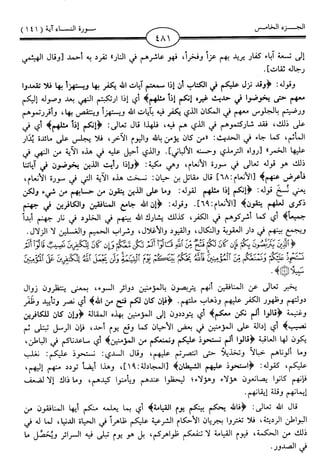 الجـــزء الخامس
٤٨١
سورة النساء آية (١٤١)
إلى تسعة آباء كفار يريد بهم عزاً وفخراً، فهو عاشرهم في النار» تفرد به أحمد [وقال الهيثمي
رجاله ثقات].
وقوله: ﴿وقد نزل عليكم في الكتاب أن إذا سمعتم آيات الله يكفر بها ويستهزأ بها فلا تقعدوا
معهم حتى يخوضوا في حديث غيره إنكم إذاً مثلهم﴾ أي إذا ارتكبتم النهي بعد وصوله إليكم
ورضيتم بالجلوس معهم في المكان الذي يكفر فيه بآيات الله ويستهزأ وينتقص بها، وأقررتموهم
على ذلك، فقد شاركتموهم في الذي هم فيه، فلهذا قال تعالى: ﴿إنكم إذاً مثلهم﴾ أي في
المأثم، كما جاء في الحديث: «من كان يؤمن بالله واليوم الآخر، فلا يجلس على مائدة يدار
عليها الخمر» [رواه الترمذي وحسنه الألباني]. والذي أحيل عليه في هذه الآية من النهي في
ذلك هو قوله تعالى في سورة الأنعام، وهي مكية: ﴿وإذا رأيت الذين يخوضون في آياتنا
فأعرض عنهم﴾ [الأنعام: ٦٨] قال مقاتل بن حيان: نسخت هذه الآية التي في سورة الأنعام،
يعني نُسخ قوله: ﴿إنكم إذاً مثلهم﴾ لقوله: ﴿وما على الذين يتقون من حسابهم من شيء ولكن
ذكرى لعلهم يتقون﴾ [الأنعام: ٦٩]. وقوله: ﴿إن الله جامع المنافقين والكافرين في جهنم
جميعاً﴾ أي كما أشركوهم في الكفر، كذلك يشارك الله بينهم في الخلود في نار جهنم أبداً
ويجمع بينهم في دار العقوبة والنكال، والقيود والأغلال، وشراب الحميم والغسلين لا الزلال.
﴿الَّذِينَ يَتَرَبَّصُونَ بِكُمْ فَإِن كَانَ لَكُمْ فَتْحٌ مِّنَ اللَّهِ قَالُوا أَلَمْ نَكُن مَّعَكُمْ وَإِن كَانَ لِلْكَافِرِينَ نَصِيبٌ قَالُوا أَلَمْ
نَسْتَحْوِذْ عَلَيْكُمْ وَنَمْنَعْكُم مِّنَ الْمُؤْمِنِينَ فَاللَّهُ يَحْكُمُ بَيْنَكُمْ يَوْمَ الْقِيَامَةِ وَلَن يَجْعَلَ اللَّهُ لِلْكَافِرِينَ عَلَى الْمُؤْمِنِينَ
سَبِيلًا ﴾.
يخبر تعالى عن المنافقين أنهم يتربصون بالمؤمنين دوائر السوء، بمعنى ينتظرون زوال
دولتهم وظهور الكفر عليهم وذهاب ملتهم. ﴿فإن كان لكم فتح من الله﴾ أي نصر وتأييد وظفر
وغنيمة ﴿قالوا ألم نكن معكم﴾ أي يتوددون إلى المؤمنين بهذه المقالة ﴿وإن كان للكافرين
نصيب﴾ أي إدالة على المؤمنين في بعض الأحيان كما وقع يوم أحد، فإن الرسل تبتلى ثم
يكون لها العاقبة ﴿قالوا ألم نستحوذ عليكم ونمنعكم من المؤمنين﴾ أي ساعدناكم في الباطن،
وما ألوناهم خبالاً وتخذيلاً حتى انتصرتم عليهم، وقال السدي: نستحوذ عليكم: نغلب
عليكم، كقوله: ﴿استحوذ عليهم الشيطان﴾ [المجادلة: ١٩]، وهذا أيضاً تودد منهم إليهم،
فإنهم كانوا يصانعون هؤلاء وهؤلاء؛ ليحظوا عندهم ويأمنوا كيدهم، وما ذاك إلا لضعف
إيمانهم وقلة إيقانهم.
قال الله تعالى: ﴿فالله يحكم بينكم يوم القيامة﴾ أي بما يعلمه منكم أيها المنافقون من
البواطن الرديئة، فلا تغتروا بجريان الأحكام الشرعية عليكم ظاهراً في الحياة الدنيا، لما له في
ذلك من الحكمة، فيوم القيامة لا تنفعكم ظواهركم، بل هو يوم تبلى فيه السرائر ويُحَصَّل ما
في الصدور.